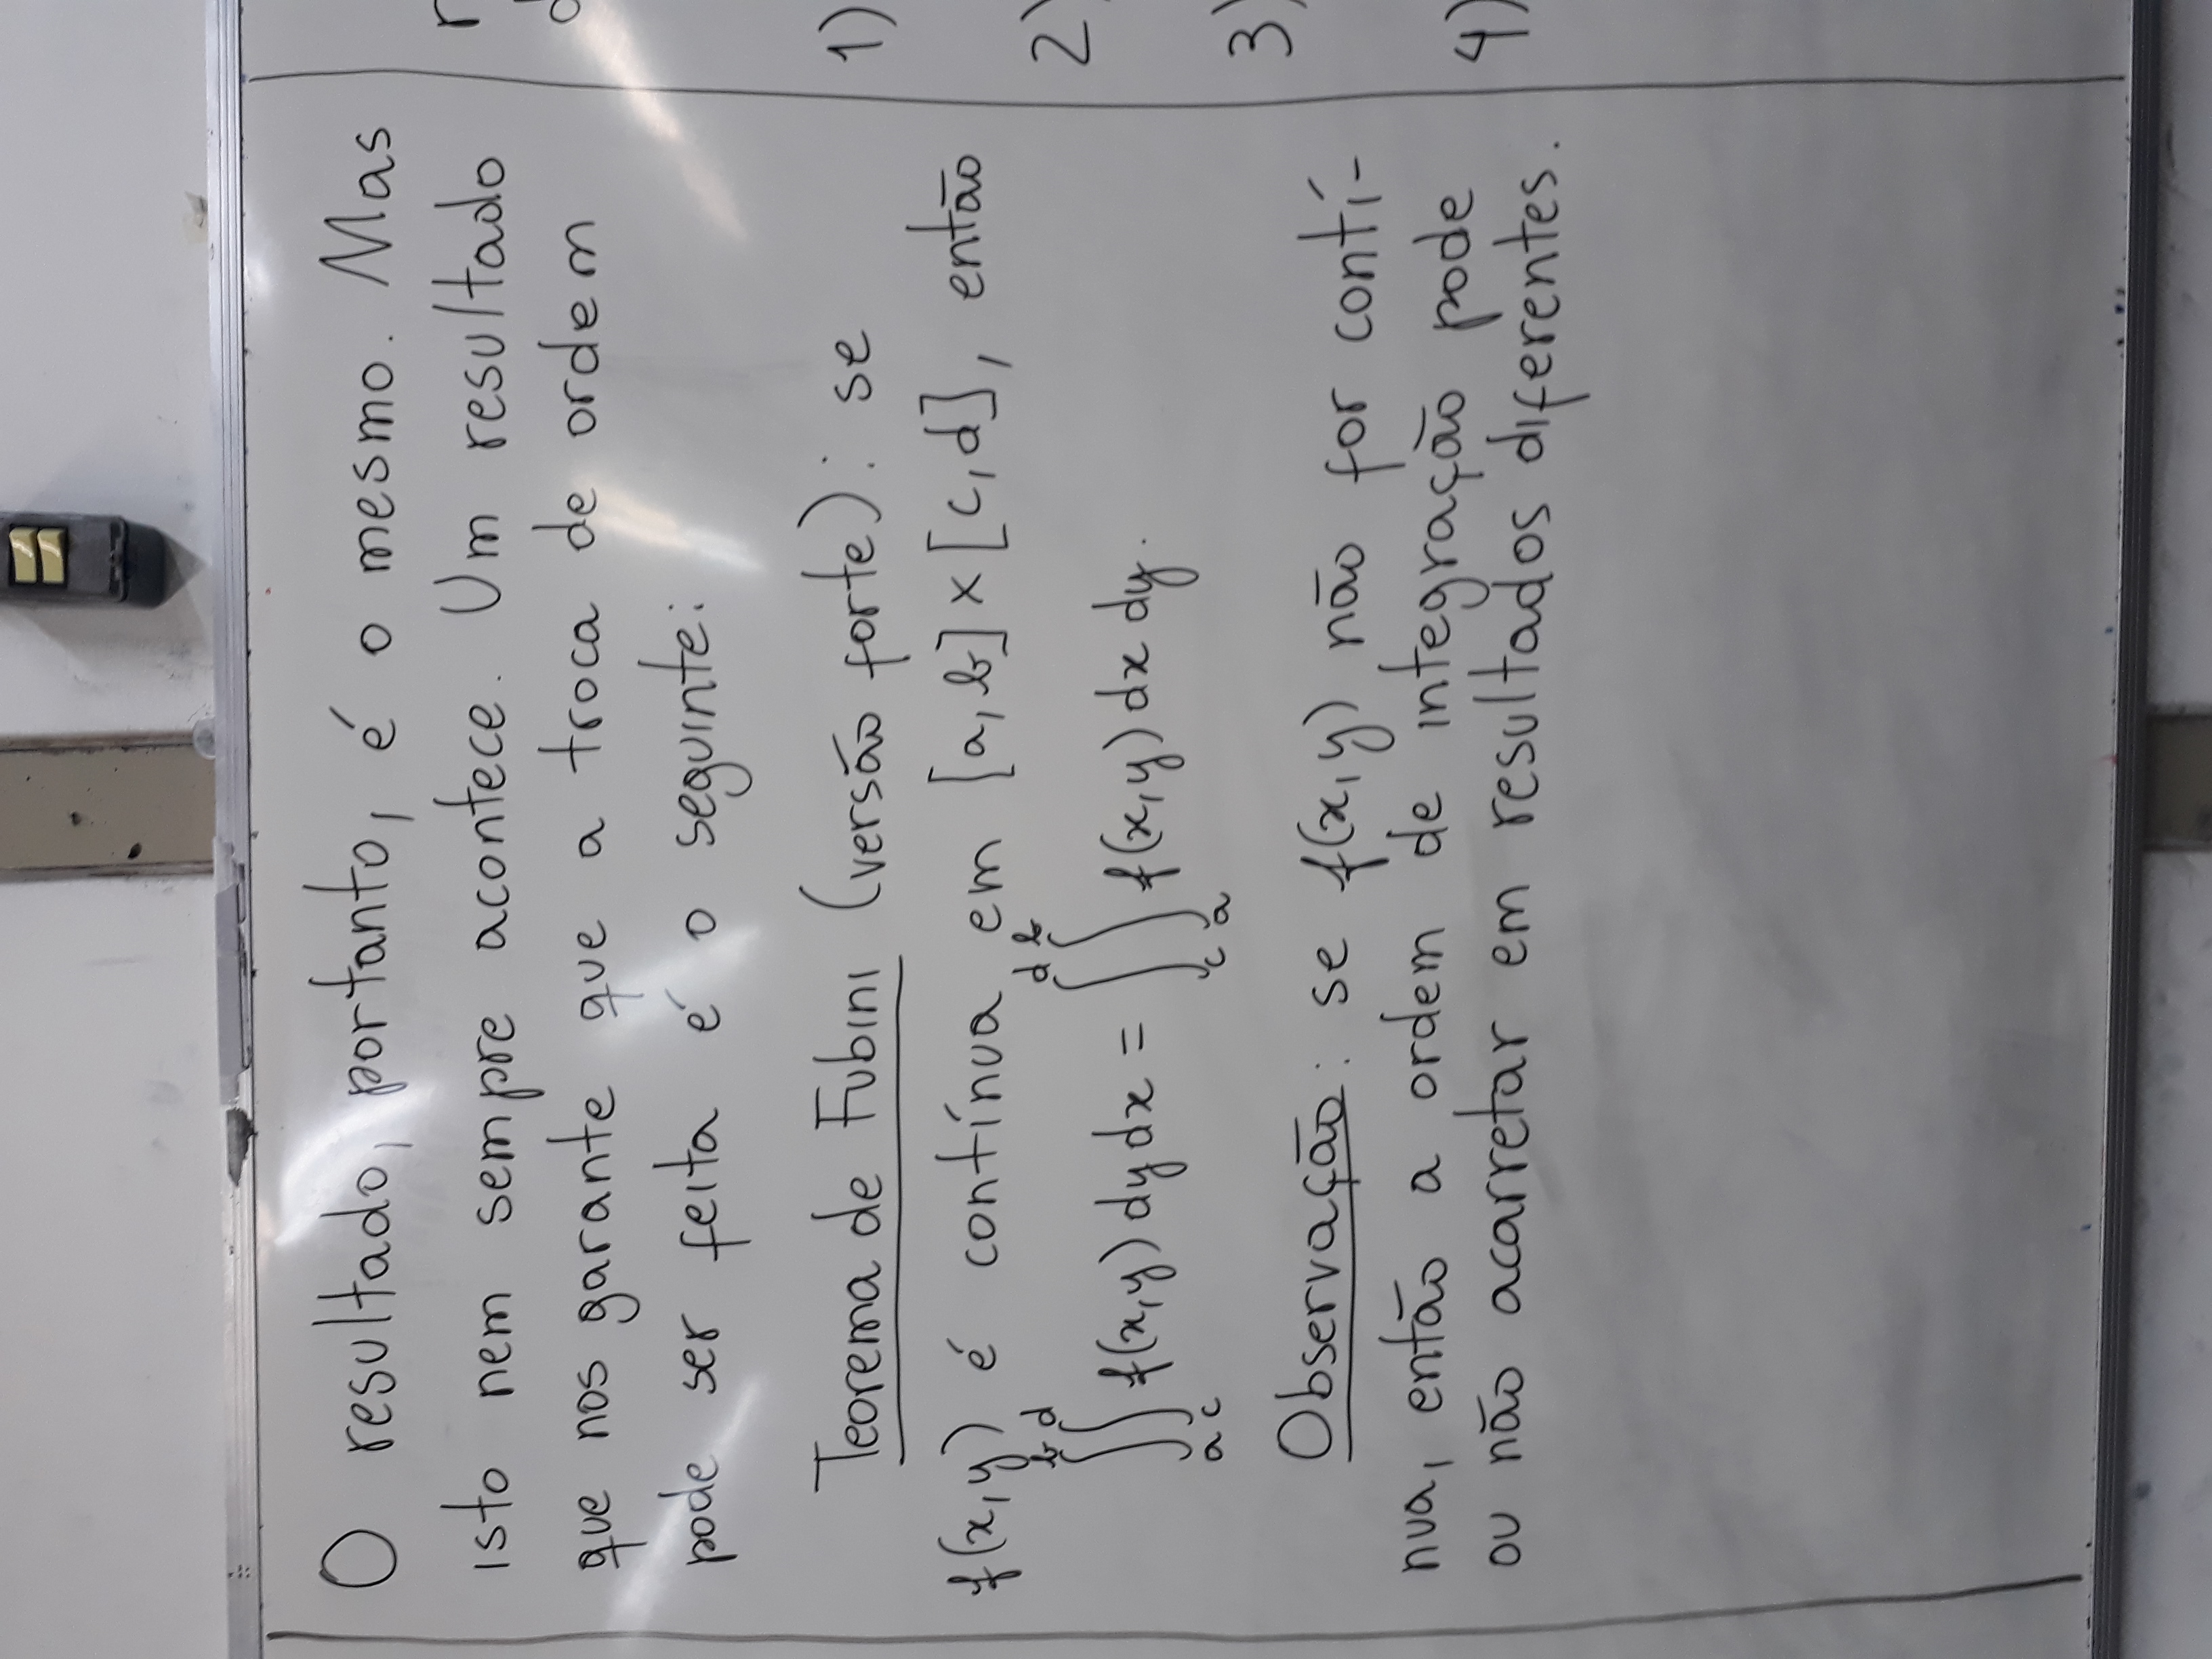 O resultado, portanto, é o mesmo. Mas
isto nem sempre acontece. Um resultado
que nos garante que a troca de ordem
pode ser feita é o seguinte:
Teorema de Fubini (versão forte): se
f(x,y) é contínua em [a,b]×[c,d], então
∫_a^b ∫_c^d f(x,y) dy dx = ∫_c^d ∫_a^b f(x,y) dx dy.
Observação: se f(x,y) não for contí-
nua, então a ordem de integração pode
ou não acarretar em resultados diferentes.
1)
2)
3)
4)